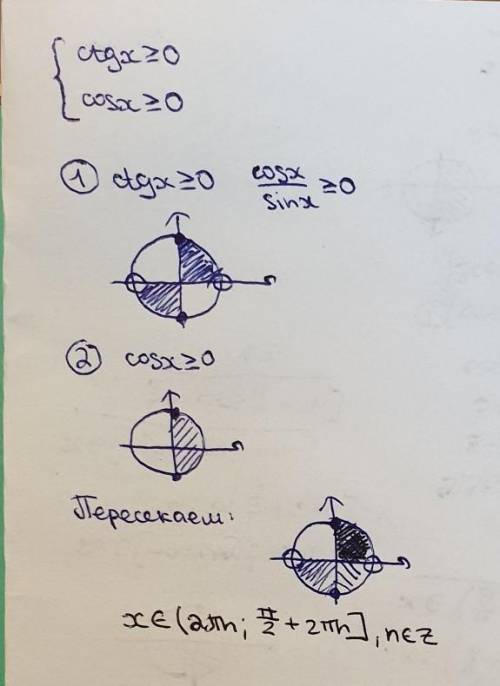 { ctgx ≥ 0
cosx ≥ 0
① ctgx ≥ 0 cosx/sinx ≥ 0
② cosx ≥ 0
Пересекаем:
x ∈ (2πn; π/2 + 2πn], n ∈ Z